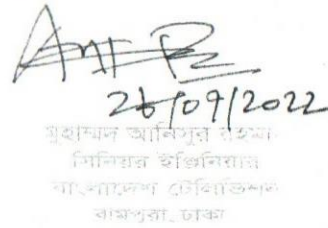 26/09/2022
মুহাম্মদ আনিসুর রহমা
সিনিয়র ইঞ্জিনিয়ার
বাংলাদেশ টেলিভিশন
রামপুরা, ঢাকা